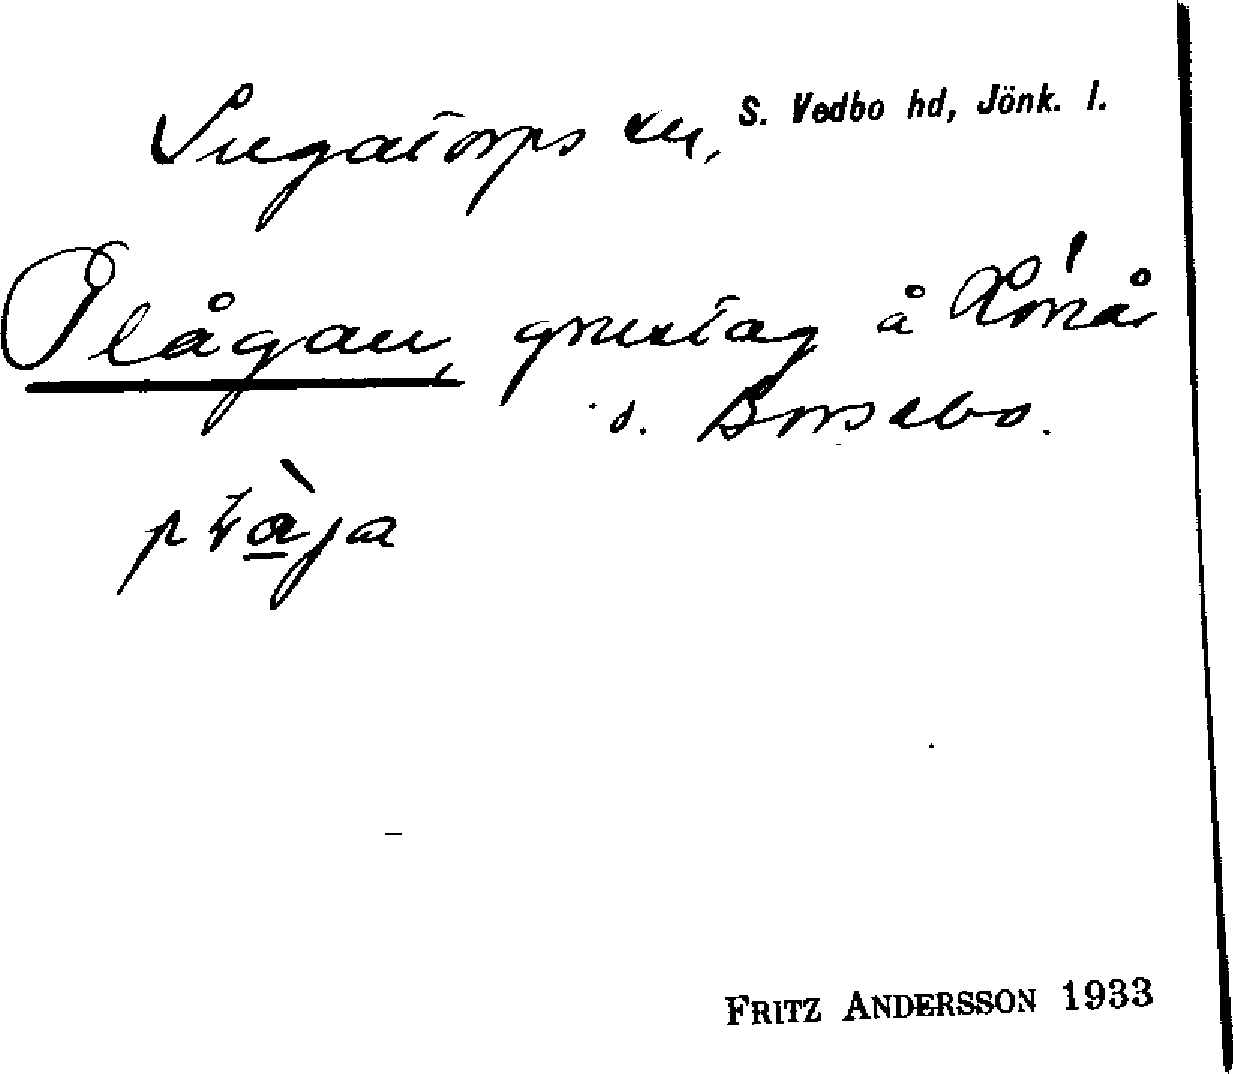 Ingatorps sn, S. Vedbo hd, Jönk. l.
Plågan, grustag å
s. Borsebo.
FRITZ ANDERSSON 1933